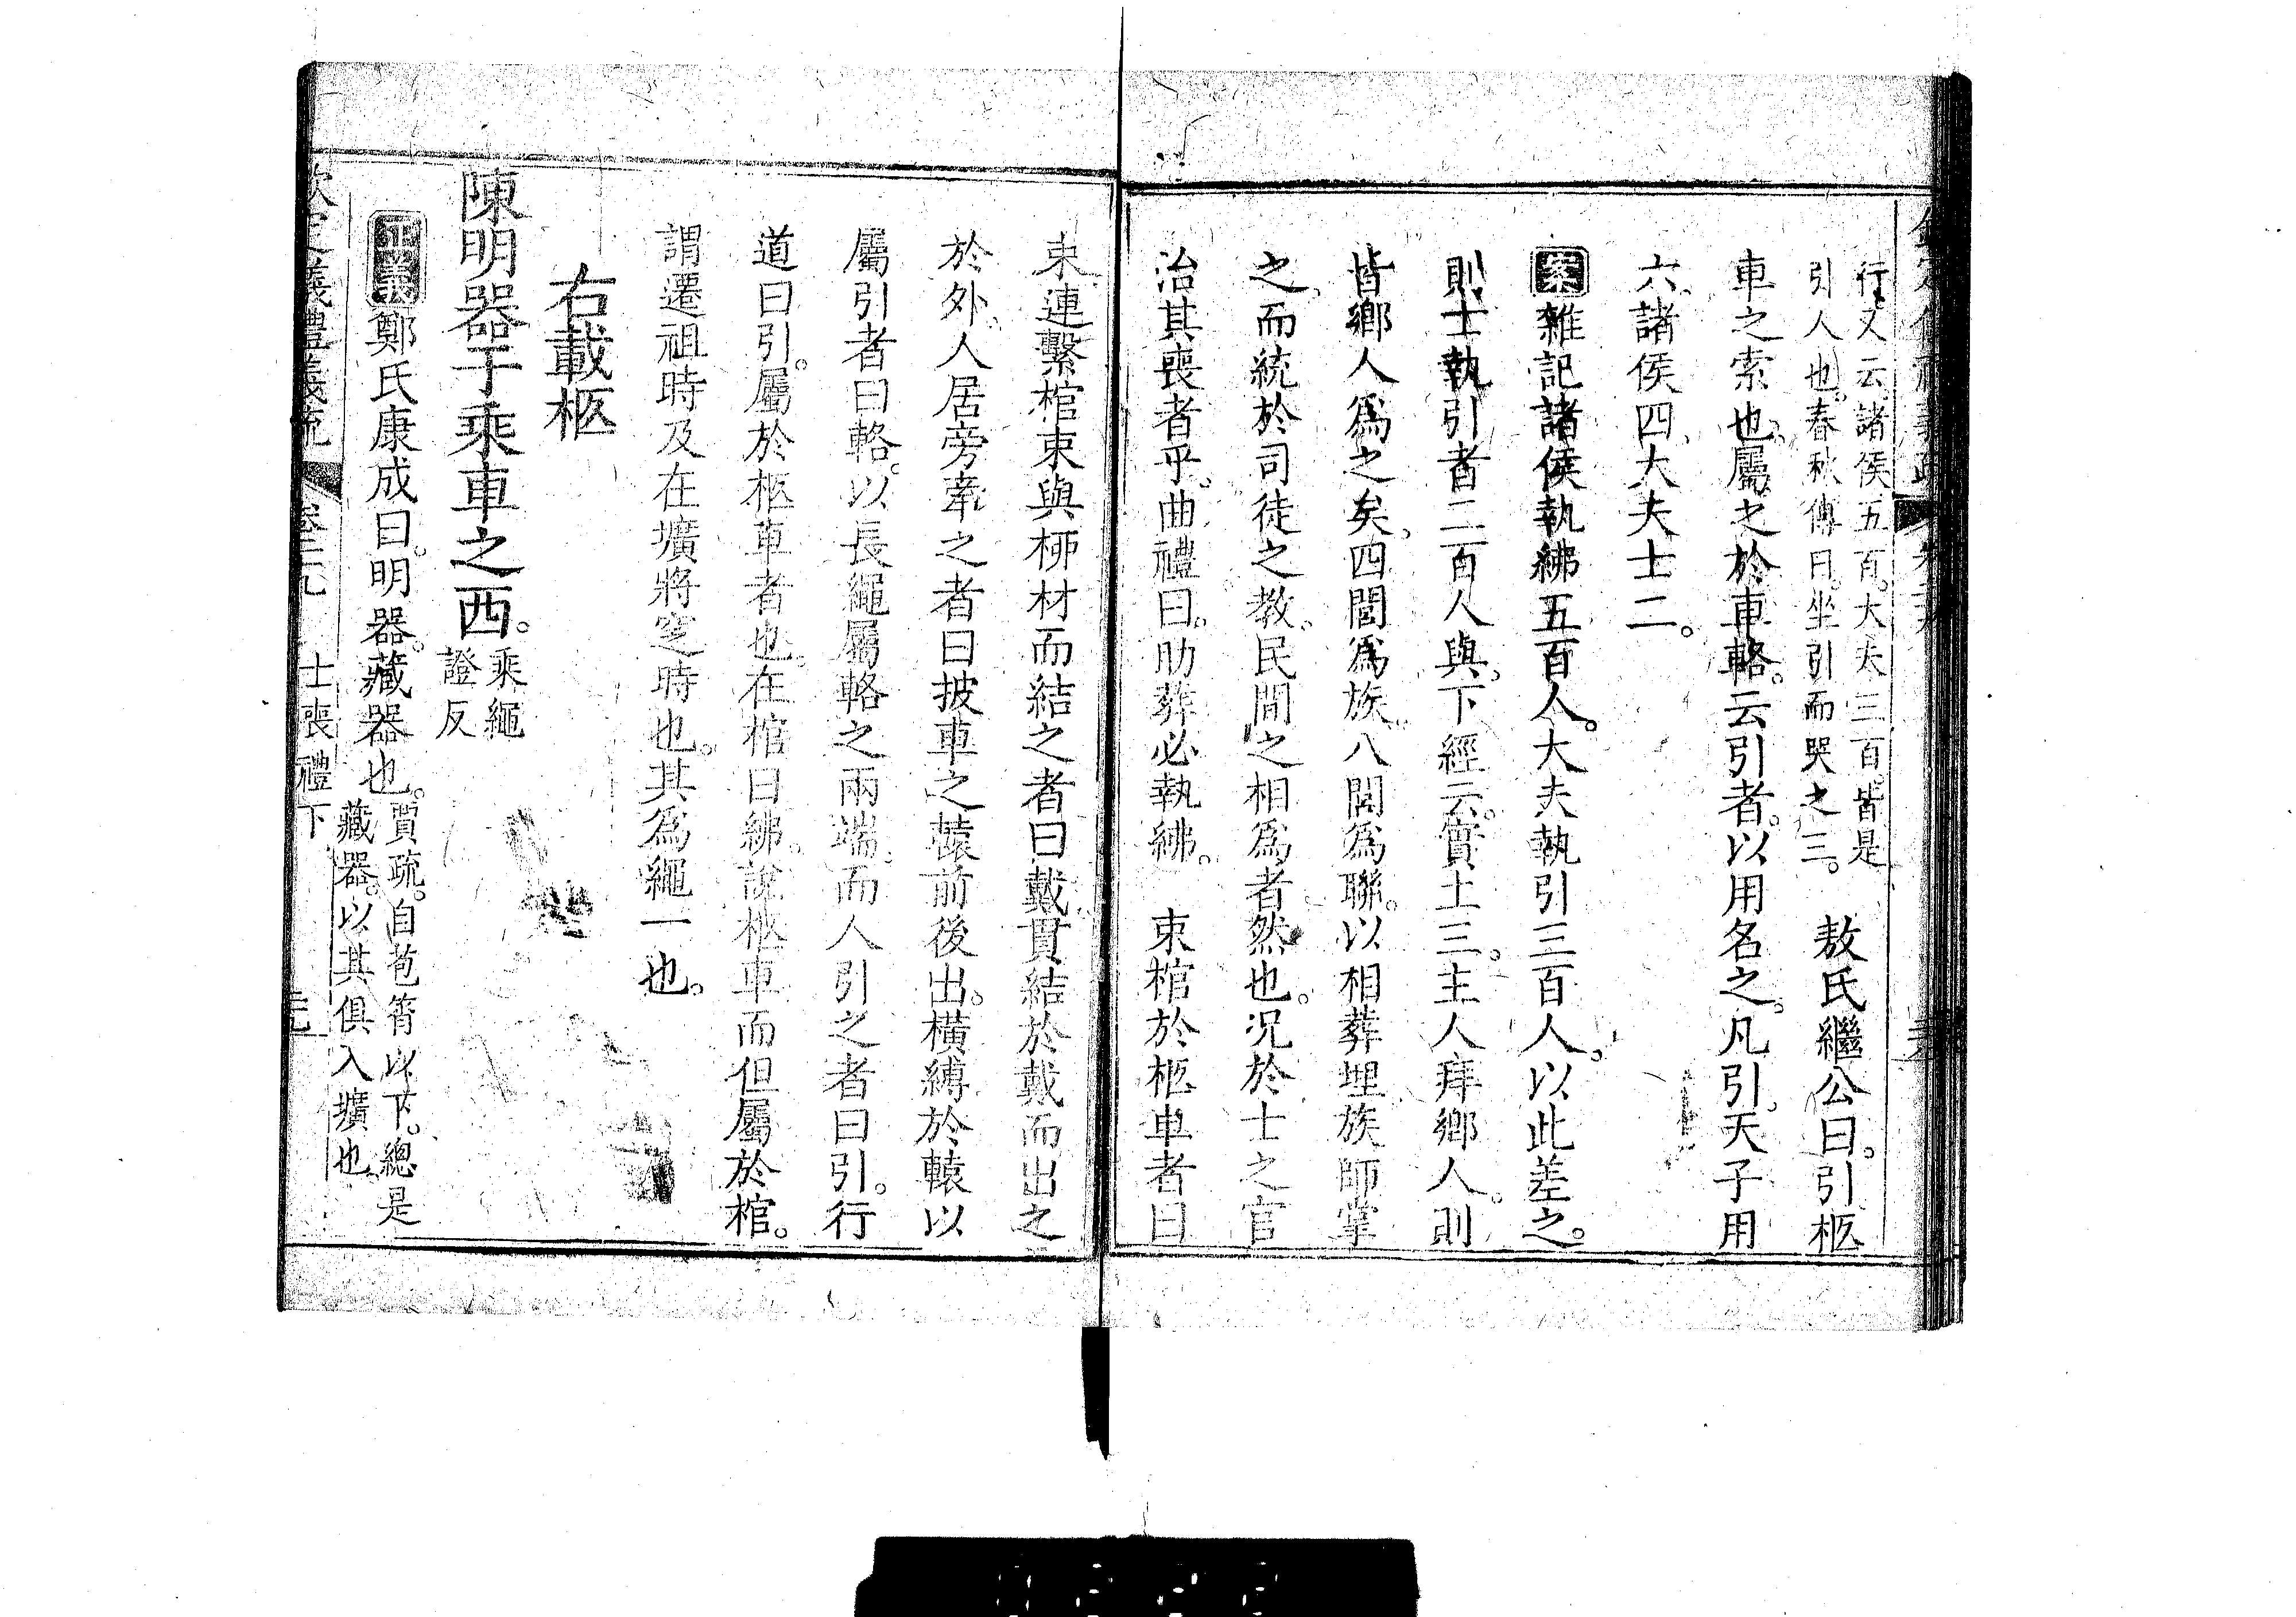 行。又云。諸侯五百。大夫三百。皆是
引人也。春秋傳曰。坐引而哭之三。
敖氏繼公曰。引柩
車之索也。屬之於車輅。云引者。以用名之。凡引。天子用
六。諸侯四。大夫士二。
案雜記諸侯執綍五百人。大夫執引三百人。以此差之。
則士執引者二百人與。下經云。實土三。主人拜鄉人。則
皆鄉人爲之矣。四閭爲族。八閭爲聯。以相葬埋。族師掌
之。而統於司徒之教。民間之相爲者然也。况於士之官
治其喪者乎。曲禮曰。助葬必執綍。 束棺於柩車者曰
束。連繫棺束與柳材而結之者曰戴。貫結於戴而出之
於外。人居旁牽之者曰披。車之轅前後出。橫縛於轅以
屬引者曰輅。以長繩屬輅之兩端。而人引之者曰引。行
道曰引。屬於柩車者也。在棺曰綍。說柩車而但屬於棺。
謂遷祖時及在壙將窆時也。其爲繩一也。
右載柩
陳明器于乘車之西。
乘繩
證反
正義鄭氏康成曰。明器。藏器也。
賈疏。自苞筲以下。總是
藏器。以其俱入壙也。
欽定儀禮義疏 卷二九 士喪禮下